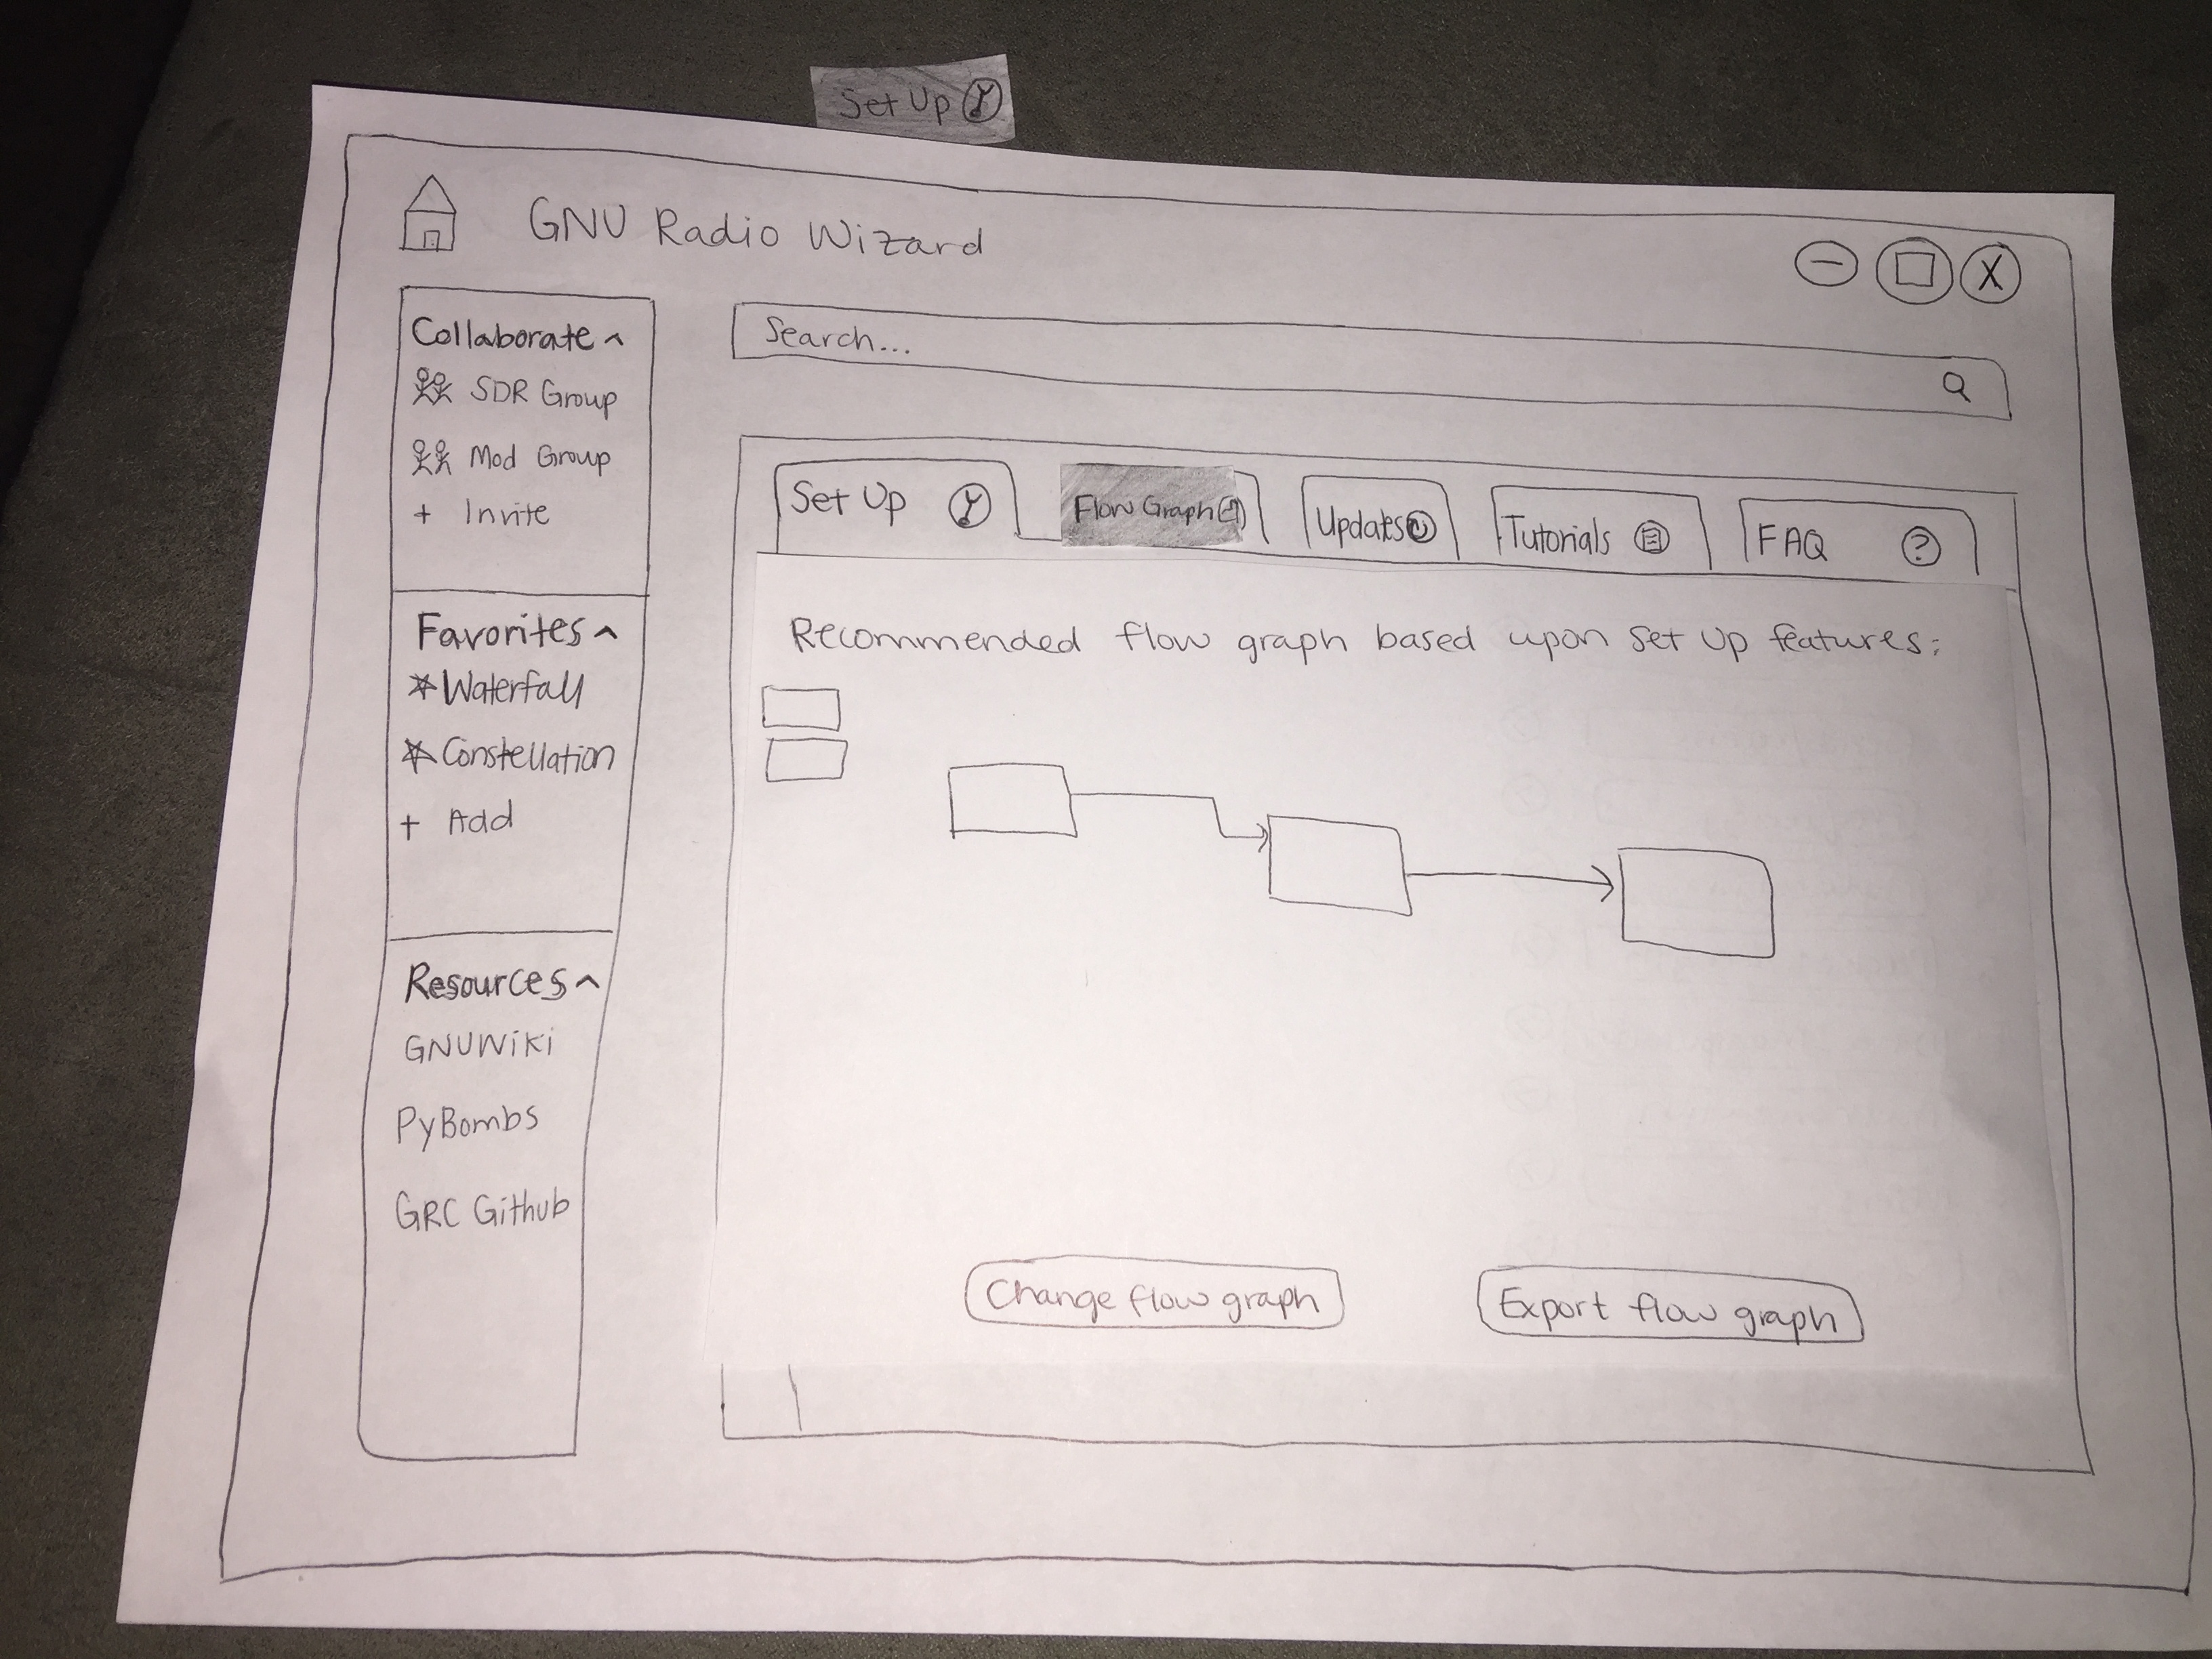 Set Up
GNU Radio Wizard
X
Search...
Collaborate ^
SDR Group
Mod Group
+ Invite
Favorites ^
* Waterfall
* Constellation
+ Add
Resources ^
GNUWiki
PyBombs
GRC Github
Set Up
Flow Graph
Updates
Tutorials
FAQ ?
Recommended flow graph based upon Set Up features:
Change flow graph
Export flow graph